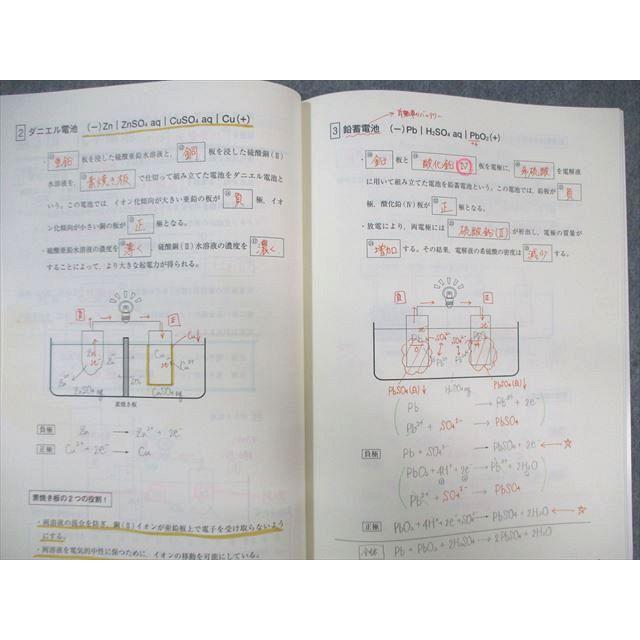 2 ダニエル電池 (−)Zn | ZnSO₄ aq | CuSO₄ aq | Cu(+)
・亜鉛板を浸した硫酸亜鉛水溶液と、銅板を浸した硫酸銅(Ⅱ)
水溶液を、素焼き板で仕切って組み立てた電池をダニエル電池と
いう。この電池では、イオン化傾向が大きい亜鉛の板が負極、イオ
ン化傾向が小さい銅の板が正極となる。
・硫酸亜鉛水溶液の濃度を薄く、硫酸銅(Ⅱ)水溶液の濃度を濃く
することによって、より大きな起電力が得られる。
負 → → 正
Cu↓
Zn
Cu
Cu²⁺
Zn²⁺
ZnSO₄ aq
CuSO₄ aq
素焼き板
負極 Zn → Zn²⁺ + 2e⁻
正極 Cu²⁺ + 2e⁻ → Cu
素焼き板の2つの役割!
・両溶液の混合を防ぎ、銅(Ⅱ)イオンが亜鉛板上で電子を受け取らないよう
にする。
・両溶液を電気的中性に保つために、イオンの移動を可能にしている。
自動車のバッテリー
3 鉛蓄電池 (−)Pb | H₂SO₄ aq | PbO₂(+)
・鉛板と酸化鉛(Ⅳ)板を電極に、希硫酸を電解液
に用いて組み立てた電池を鉛蓄電池という。この電池では、鉛板が負
極、酸化鉛(Ⅳ)板が正極となる。
・放電により、両電極には硫酸鉛(Ⅱ)が析出し、電極の質量が
増加する。その結果、電解液の希硫酸の密度は減少する。
負 → → 正
Pb
SO₄²⁻ SO₄²⁻
Pb²⁺
PbSO₄(白)↓ H₂SO₄ aq PbSO₄(白)↓
Pb → Pb²⁺ + 2e⁻
Pb²⁺ + SO₄²⁻ → PbSO₄
負極 Pb + SO₄²⁻ → PbSO₄ + 2e⁻ ←☆
PbO₂ + 4H⁺ + 2e⁻ → Pb²⁺ + 2H₂O
Pb²⁺ + SO₄²⁻ → PbSO₄
正極 PbO₂ + 4H⁺ + 2e⁻ + SO₄²⁻ → PbSO₄ + 2H₂O ←☆
全体 Pb + PbO₂ + 2H₂SO₄ → 2PbSO₄ + 2H₂O